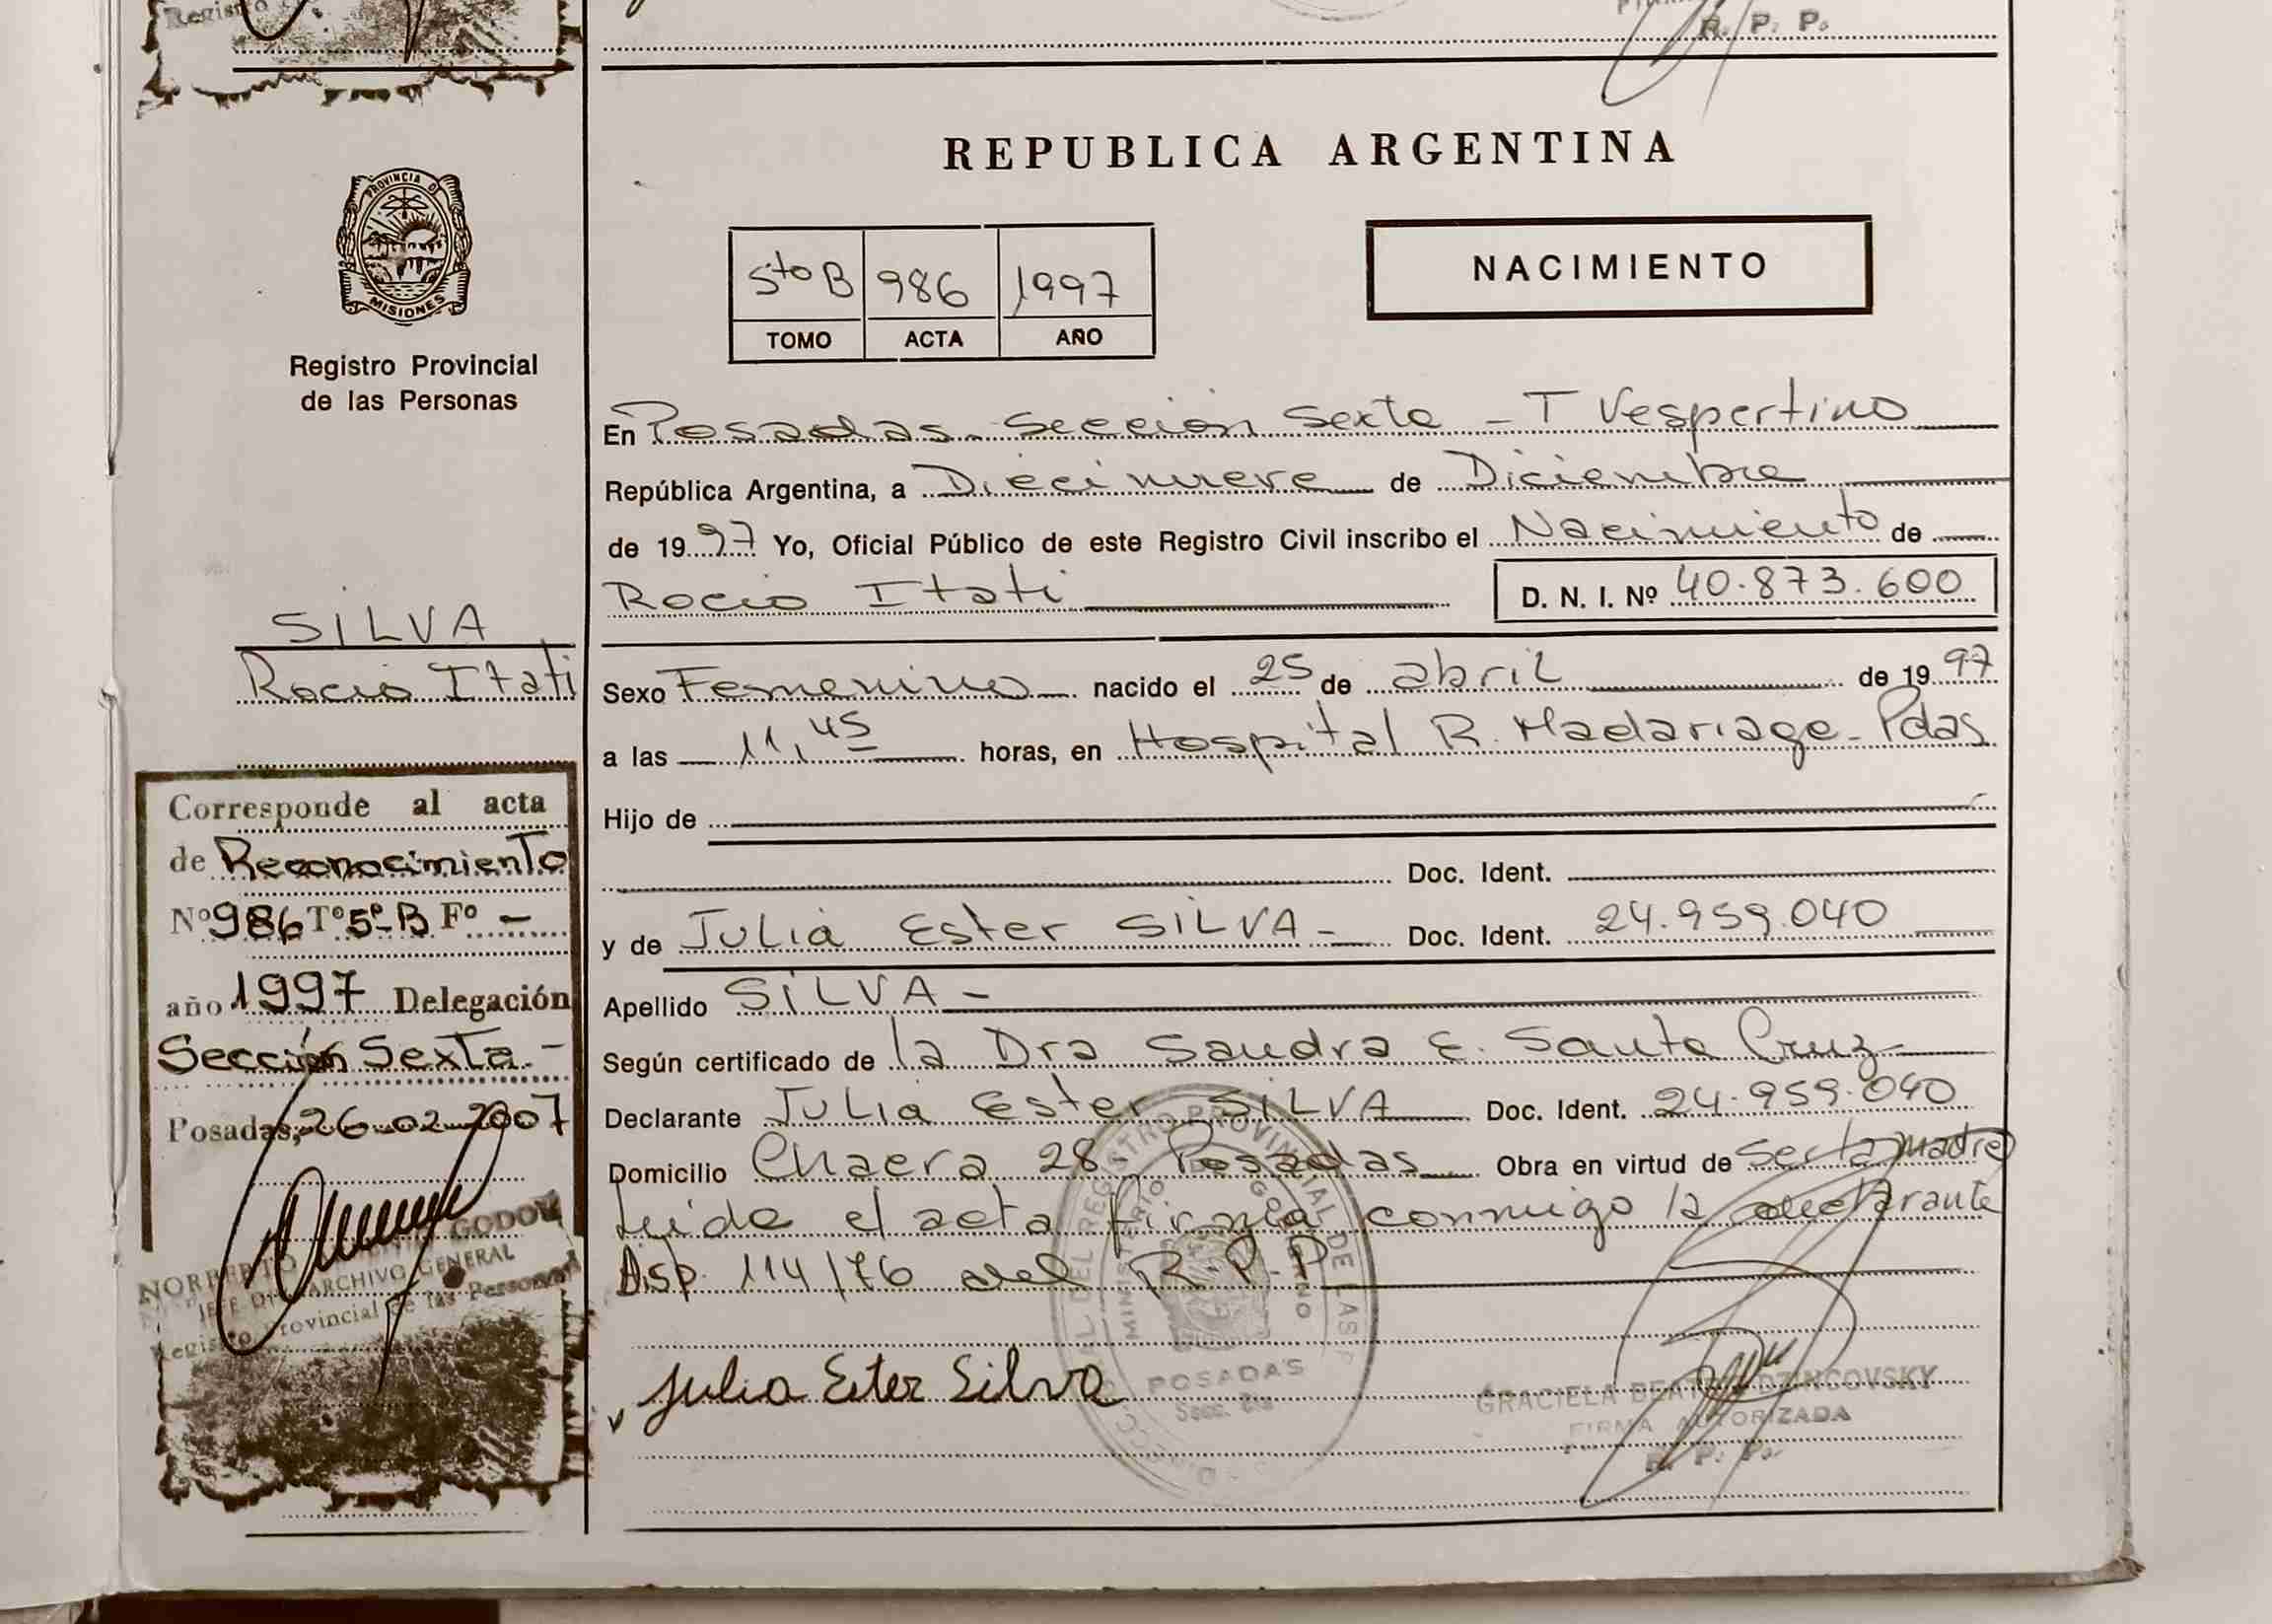 Registro
R. P. P.
PROVINCIA DE
MISIONES
Registro Provincial
de las Personas
SILVA
Rocio Itati
Corresponde al acta
de Reconocimiento
Nº 986 Tº 5º-B Fº -
año 1997 Delegación
Sección Sexta.-
Posadas, 26-02-2007
NORBERTO GODOY
JEFE ARCHIVO GENERAL
Registro Provincial de las Personas
REPUBLICA ARGENTINA
5to B 986 1997
TOMO ACTA AÑO
NACIMIENTO
En Posadas - Sección Sexta - T Vespertino
República Argentina, a Diecinueve de Diciembre
de 1997 Yo, Oficial Público de este Registro Civil inscribo el Nacimiento de
Rocio Itati D. N. I. Nº 40.873.600
Sexo Femenino nacido el 25 de abril de 1997
a las 11,45 horas, en Hospital R. Madariaga - Pdas
Hijo de
Doc. Ident.
y de Julia Ester SILVA - Doc. Ident. 24.959.040
Apellido SILVA -
Según certificado de la Dra Sandra E. Santa Cruz
Declarante Julia Ester SILVA Doc. Ident. 24.959.040
Domicilio Chacra 28 - Posadas Obra en virtud de ser la madre
Leida el acta firma conmigo la declarante
Disp. 114/76 del R.P.P.
Julia Ester Silva
REGISTRO PROVINCIAL DE LAS
MINISTERIO GOBIERNO
POSADAS
Secc. 6ta
GRACIELA DZINCOVSKY
FIRMA AUTORIZADA
R. P. P.